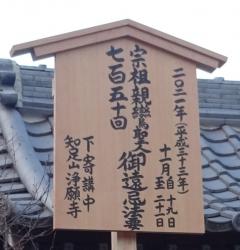 二〇二一年(平成三十三年)
十一月 自 十九日
至 二十一日
宗祖親鸞聖人御遠忌法要
七百五十回
下寄講中
知足山浄願寺